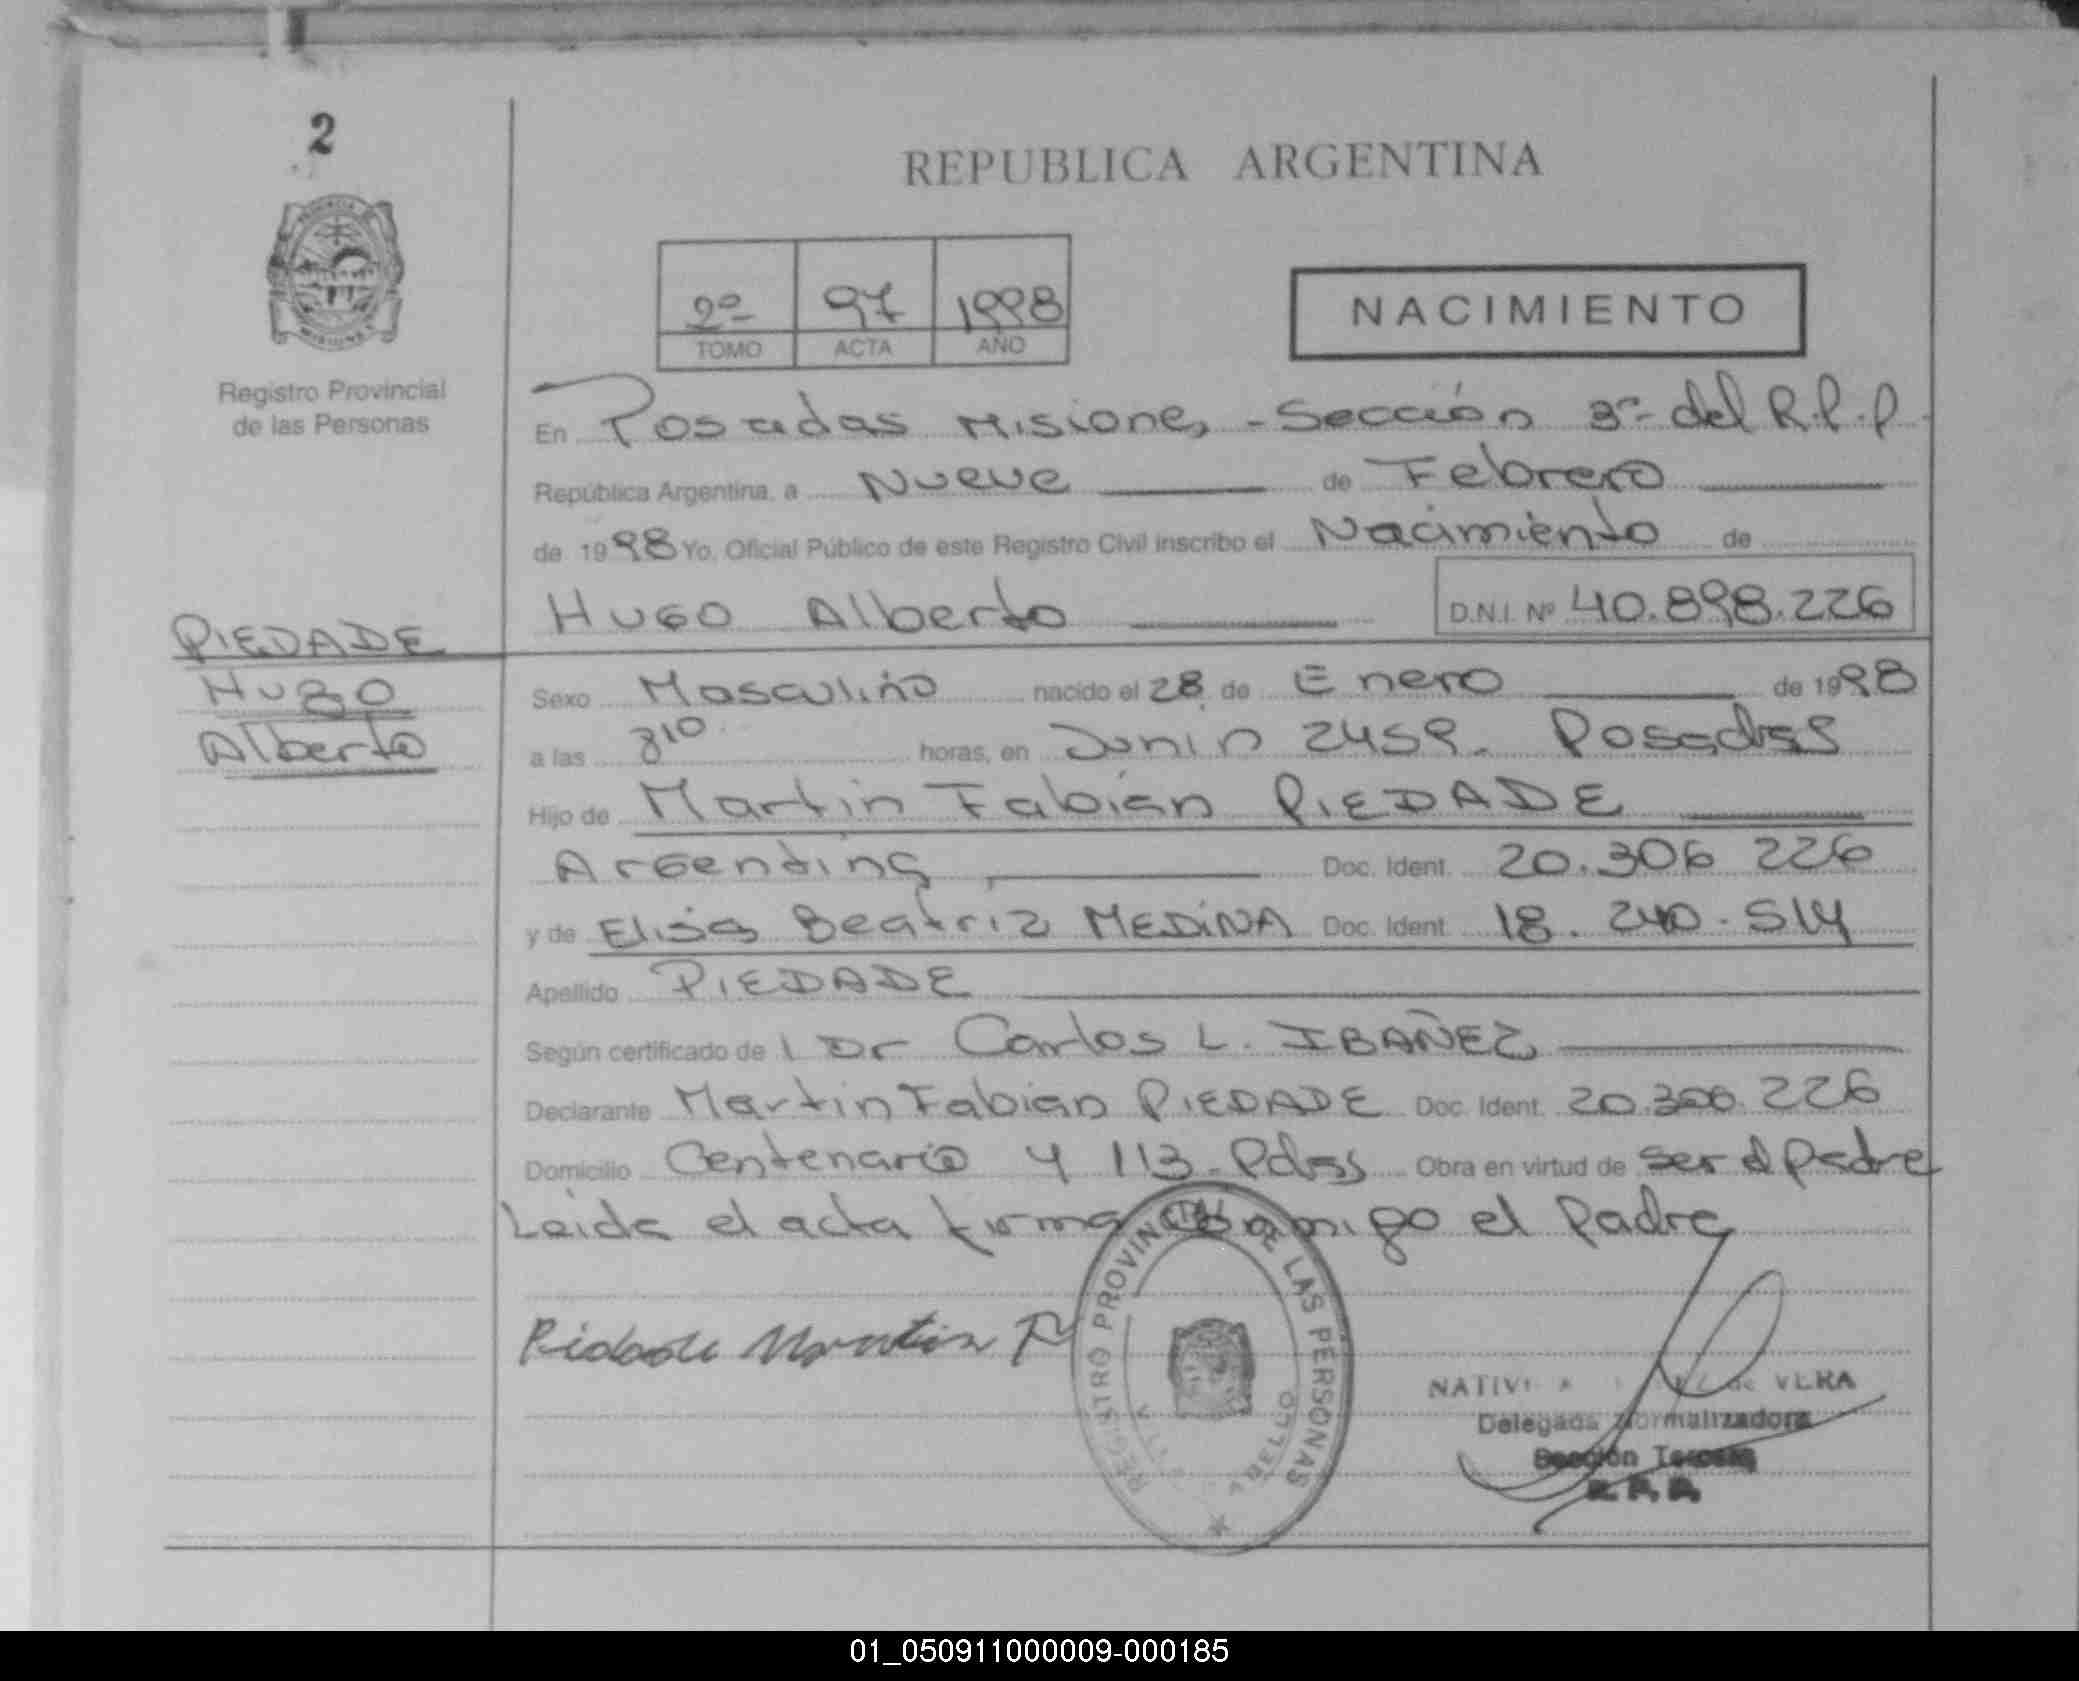 2
REPUBLICA ARGENTINA
2º 97 1998
TOMO ACTA AÑO
NACIMIENTO
Registro Provincial
de las Personas
En Posadas Misiones - Sección 3ª del R.P.P.
República Argentina, a Nueve de Febrero
de 1998 Yo, Oficial Público de este Registro Civil inscribo el Nacimiento de
Hugo Alberto D.N.I. Nº 40.898.226
PIEDADE
Hugo
Alberto
Sexo Masculino nacido el 28 de Enero de 1998
a las 810 horas, en Junin 2459. Posadas
Hijo de Martin Fabián PIEDADE
Argentina Doc. Ident. 20.306 226
y de Elisa Beatriz MEDINA Doc. Ident 18. 240. 514
Apellido PIEDADE
Según certificado de l Dr Carlos L. IBAÑEZ
Declarante Martin Fabian PIEDADE Doc. Ident. 20.306.226
Domicilio Centenario y 113. Pdas Obra en virtud de ser el padre
Leida el acta firma conmigo el Padre
Piedade Martin
REGISTRO PROVINCIAL DE LAS PERSONAS
de VERA
Delegada Normalizadora
Sección Tercera
R. P. P.
01_050911000009-000185